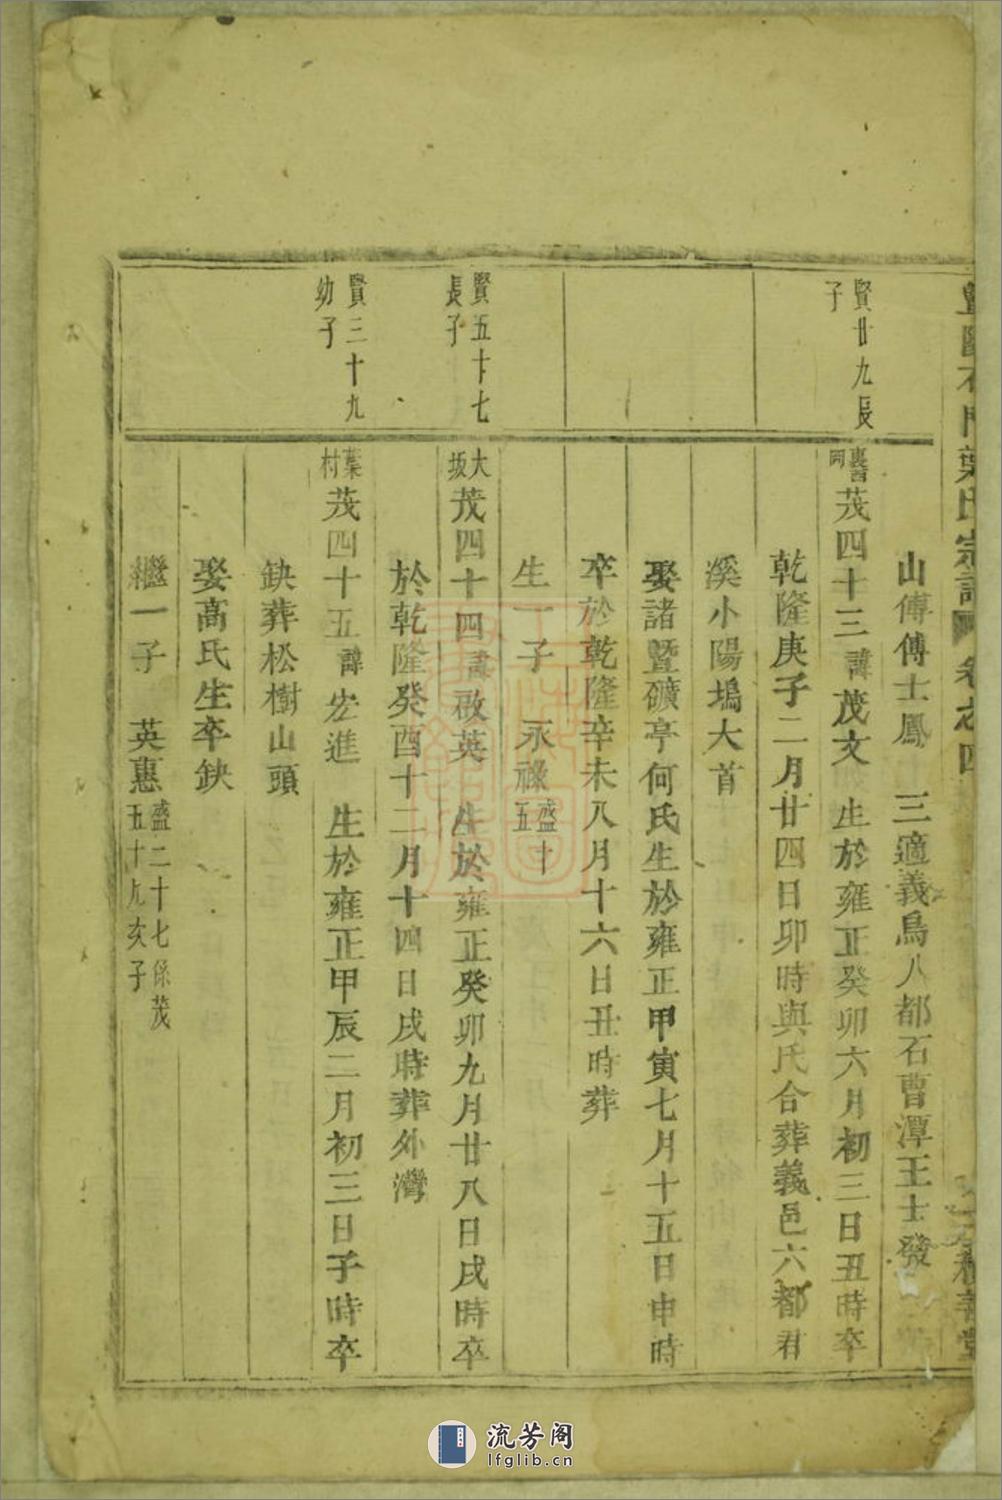 山傅傅士鳳　三適義烏八都石曹潭王士發
賢廿九長
子
茂四十三諱茂文　生於雍正癸卯六月初三日丑時卒
乾隆庚子二月廿四日卯時與氏合葬義邑六都君
溪小陽塢大首
娶諸暨礦亭何氏生於雍正甲寅七月十五日申時
卒於乾隆辛未八月十六日丑時葬
生一子　永祿盛十五
賢五十七
長子
大坂茂四十四諱啟英　生於雍正癸卯九月廿八日戌時卒
於乾隆癸酉十二月十四日戌時葬外灣
賢三十九
幼子
葉村茂四十五諱宏進　生於雍正甲辰二月初三日子時卒
缺葬松樹山頭
娶高氏生卒缺
繼一子　英惠盛二十七係茂五十九次子
流芳阁
lfglib.cn